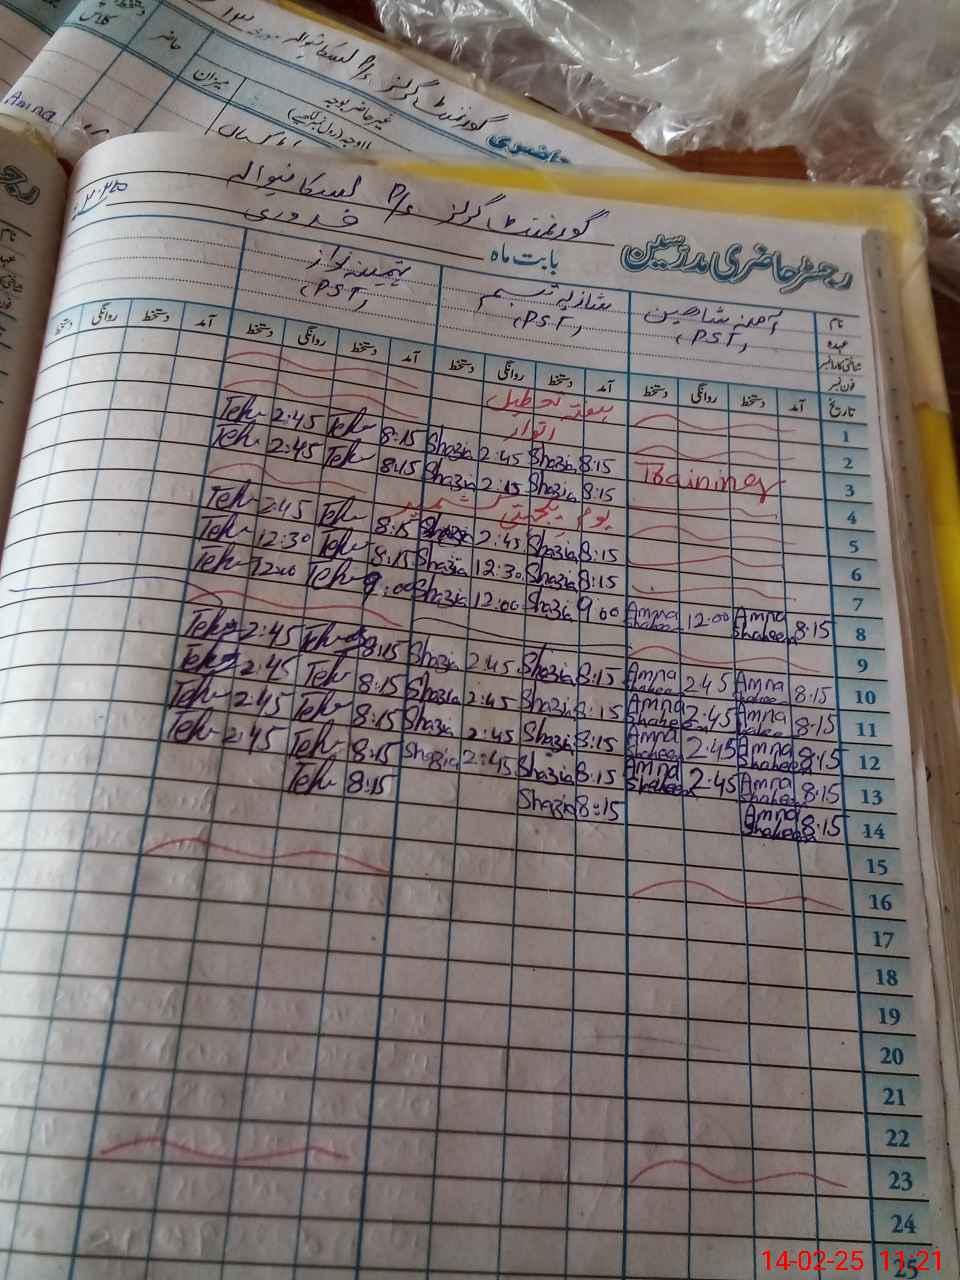 گورنمنٹ گرلز P/S لسکانیوالہ
رجسٹر حاضری مدرسین
بابت ماہ فروری
نام آمنہ شاھین شازیہ تبسم تہمینہ نواز
عہدہ (PST) (PST) (PST)
شناختی کارڈ نمبر
فون نمبر
تاریخ آمد دستخط روانگی دستخط آمد دستخط روانگی دستخط آمد دستخط روانگی دستخط آمد دستخط روانگی دستخط
1 ہفتہ تعطیل
2 اتوار
3 Training 8:15 Shazia 2:45 Shazia 8:15 Teh 2:45 Teh
4 8:15 Shazia 2:15 Shazia 8:15 Teh 2:45 Teh
5 یوم یکجہتی کشمیر
6 8:15 Shazia 2:45 Shazia 8:15 Teh 2:45 Teh
7 8:15 Shazia 12:30 Shazia 8:15 Teh 12:30 Teh
8 8:15 Amna Shaheen 12:00 Amna Shaheen 9:00 Shazia 12:00 Shazia 9:00 Teh 12:00 Teh
9
10 8:15 Amna Shaheen 2:45 Amna Shaheen 8:15 Shazia 2:45 Shazia 8:15 Teh 2:45 Teh
11 8:15 Amna Shaheen 2:45 Amna Shaheen 8:15 Shazia 2:45 Shazia 8:15 Teh 2:45 Teh
12 8:15 Amna Shaheen 2:45 Amna Shaheen 8:15 Shazia 2:45 Shazia 8:15 Teh 2:45 Teh
13 8:15 Amna Shaheen 2:45 Amna Shaheen 8:15 Shazia 2:45 Shazia 8:15 Teh 2:45 Teh
14 8:15 Amna Shaheen 8:15 Shazia 8:15 Teh
15
16
17
18
19
20
21
22
23
24
25
14-02-25 11:21